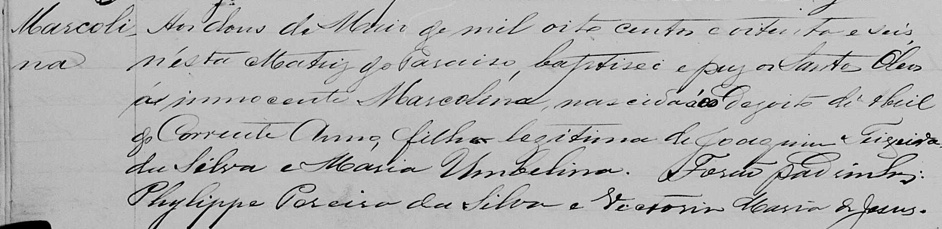 Marcoli
na
Aos dous de Maio de mil oito centos e oitenta e seis
n'esta Matriz do Paraiso, baptisei e puz os Santos Oleos
á innocente Marcolina, nascida á Dezoito de Abril
do Corrente Anno, filha legitima de Joaquim Teixeira
da Silva e Maria Umbelina. Forão Padinhos:
Phylippe Pereira da Silva e Victoria Maria de Jesus.